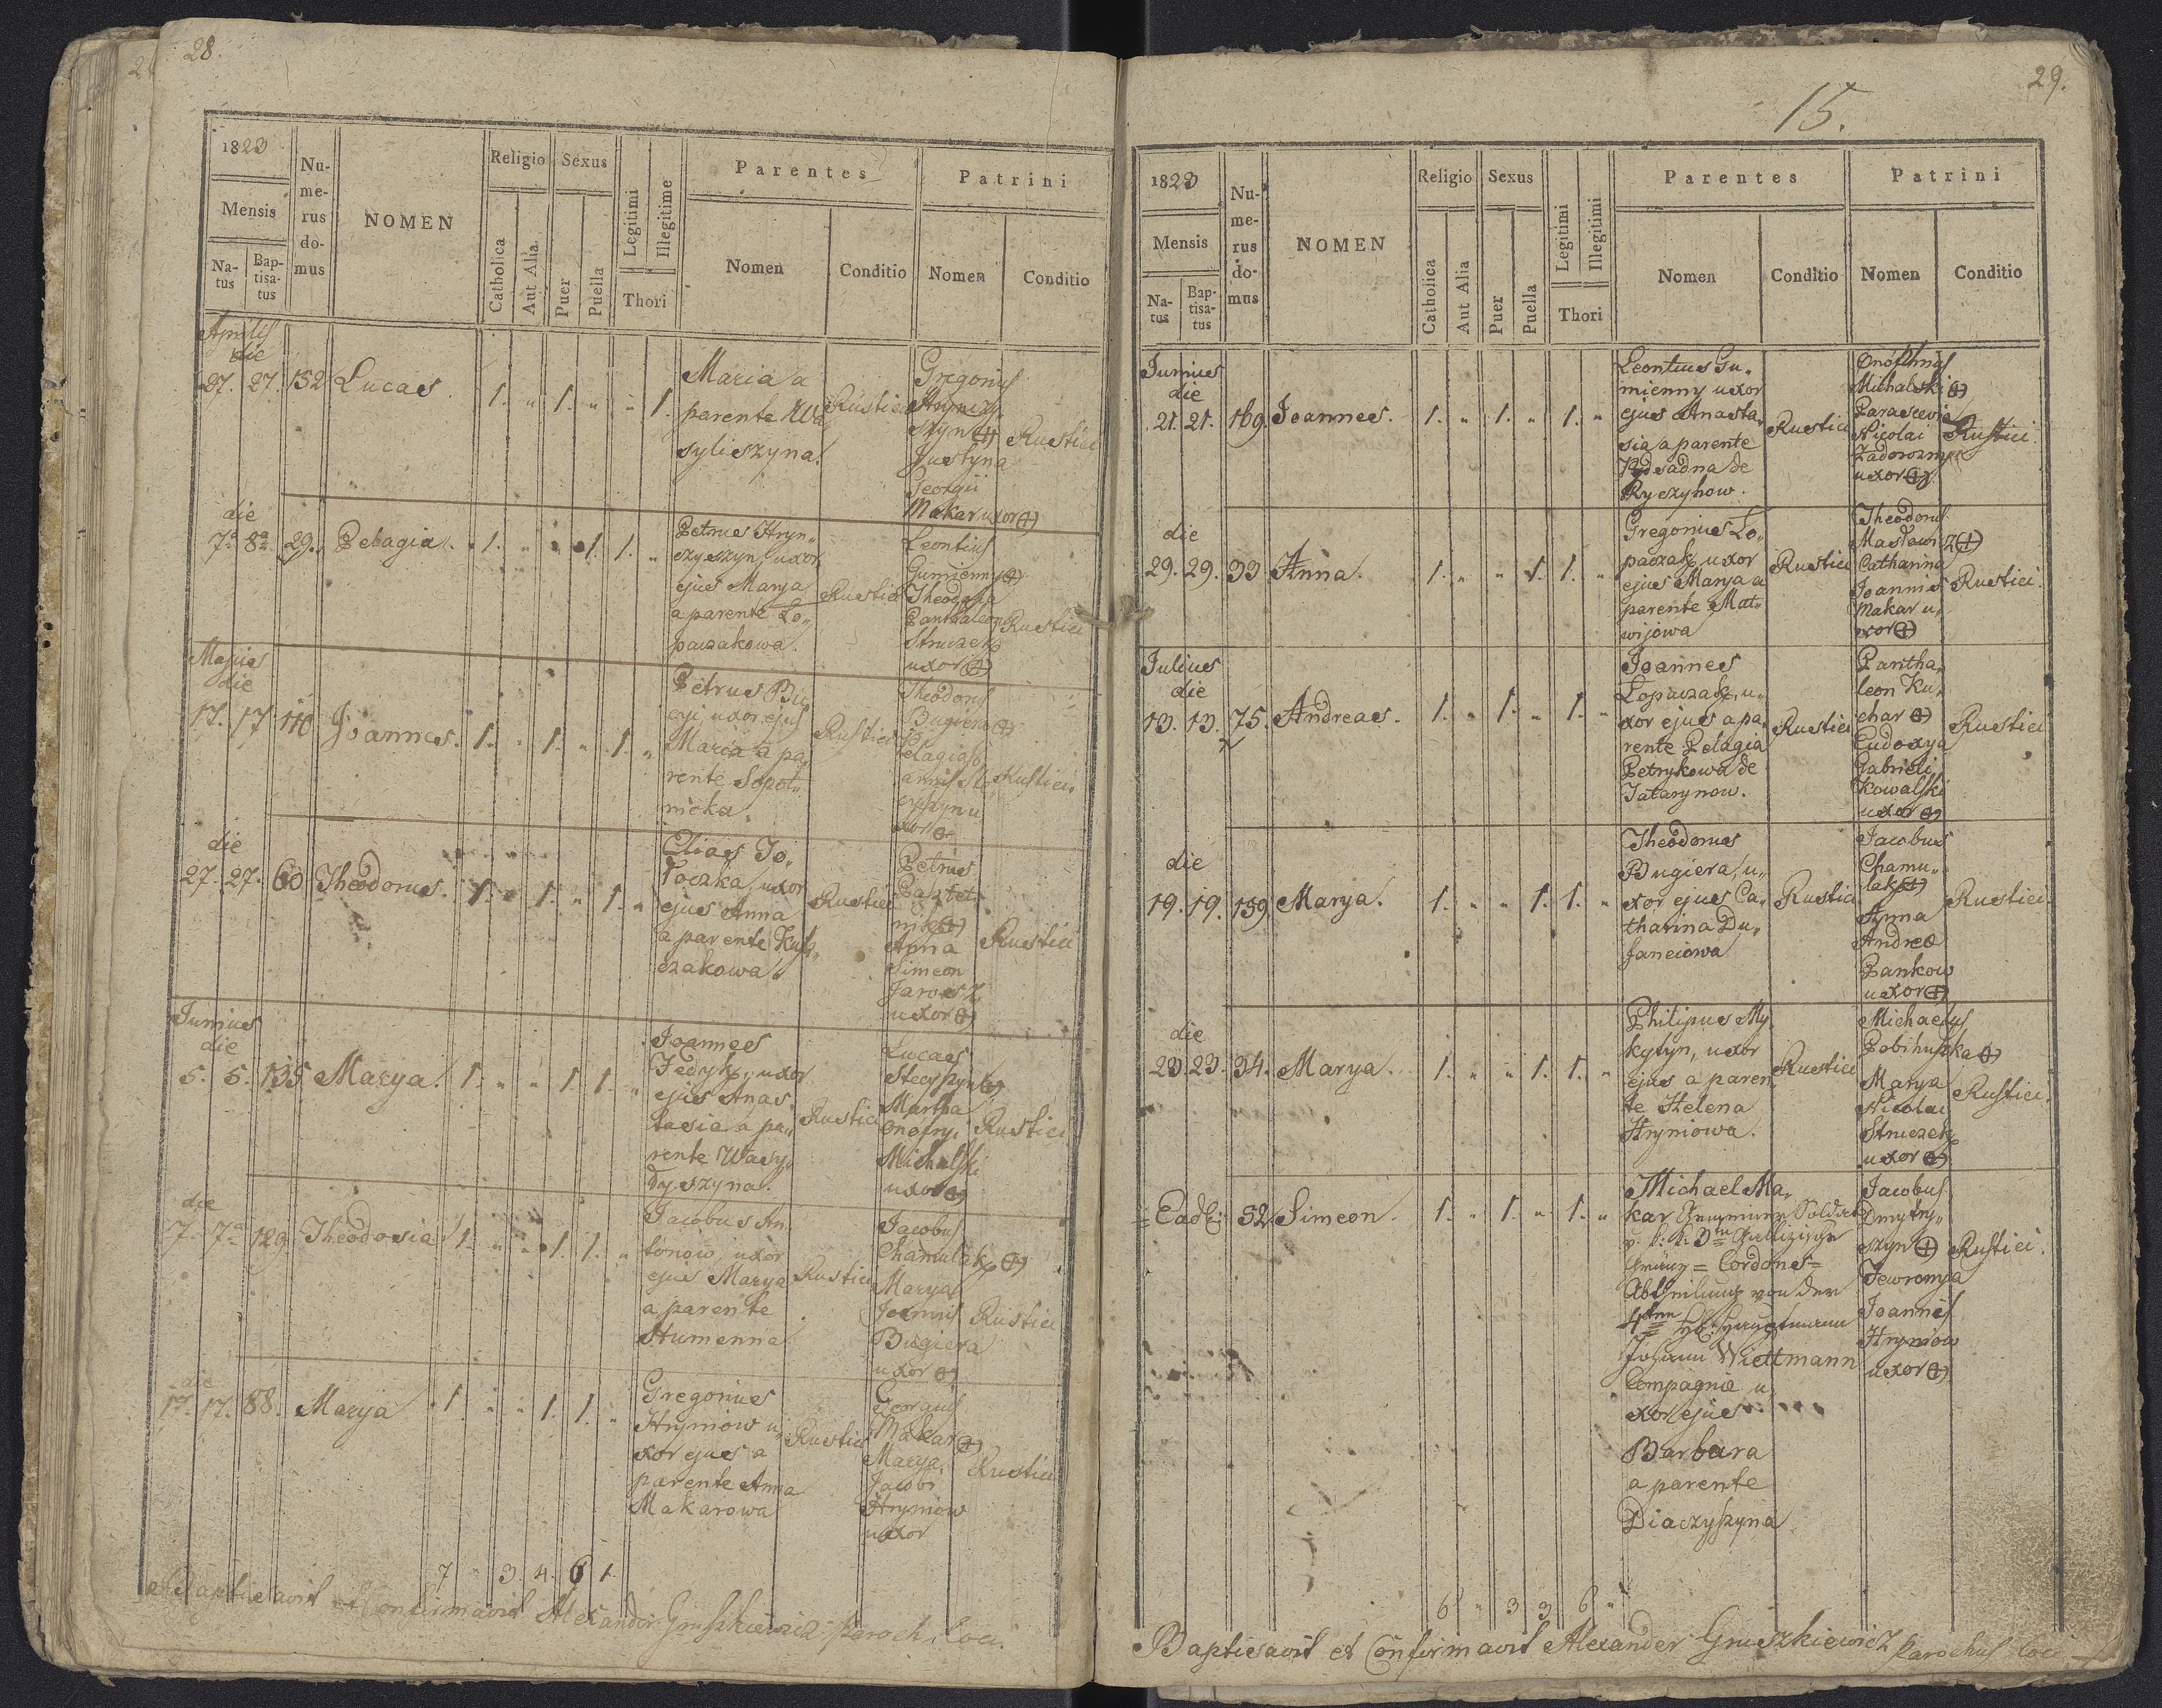 28.
1823
Mensis
Na-
tus
Bap-
tisa-
tus
Nu-
me-
rus
do-
mus
NOMEN
Religio
Catholica
Aut Alia
Sexus
Puer
Puella
Legitimi
Illegitime
Thori
Parentes
Nomen
Conditio
Patrini
Nomen
Conditio
Aprilis
die
27. 27. 132 Lucas 1. " 1. " " 1.
Maria a
parente Wa
syliszyna.
Rustica
Gregorius
Hrynczy,,
szyn
Justyna
Georgii
Makar uxor
Rustici
die
7ª 8ª 29. Pelagia. 1. " " 1. 1. "
Petrus Hryn,,
czyszyn, uxor
ejus Marya
a parente Lo,,
paczakowa.
Rustici
Leontius
Gumienny
Theodora
Panthaleon
Struczek
uxor
Rustici
Majus
die
17. 17 110 Joannes. 1. " 1. " 1. "
Petrus
uxor ejus
Maria a pa,,
rente Sopot,,
nicka.
Rustici
Theodorus
Bugiera
Pelagia
Rustici
die
27. 27. 60 Theodorus. 1. " 1. " 1. "
Elias To,,
loczka, uxor
ejus Anna
a parente
czakowa.
Rustici
Petrus
Anna
Simeon
Jarosz
uxor
Rustici
Junius
die
5. 5. 135 Marya. 1. " " 1. 1. "
Joannes
Fedyk, uxor
ejus Anas,,
tasia a pa,,
rente Wasy,,
dyszyna.
Rustici
Lucas
Stecyszyn
Martha
Onofry,
Michalski
uxor
Rustici
die
7. 7ª 129 Theodosia 1. " " 1. 1. "
Jacobus An,,
tonow, uxor
ejus Marya
a parente
Humenna
Rustici
Jacobus
Chamulak
Marya
Joannis
Bugiera
uxor
Rustici
die
17. 17. 88. Marya 1. " " 1. 1. "
Gregorius
Hryniow u,,
xor ejus a
parente Anna
Makarowa
Rustici
Georgius
Makar
Marya,
Jacobi
Hryniow
uxor
Rustici
7 " 3. 4. 6 1.
Baptisavit et Confirmavit Alexander Gruszkiewicz Paroch. loci.
29.
15.
1823
Mensis
Na-
tus
Bap-
tisa-
tus
Nu-
me-
rus
do-
mus
NOMEN
Religio
Catholica
Aut Alia
Sexus
Puer
Puella
Legitimi
Illegitimi
Thori
Parentes
Nomen
Conditio
Patrini
Nomen
Conditio
Junius
die
21. 21. 169. Joannes. 1. " 1. " 1. "
Leontius Gu,,
mienny uxor
ejus Anasta,,
sia a parente
de
Ryszyhow.
Rustici
Michalski
Parascevia
Nicolai
Zadorozny
uxor
Rustici.
die
29. 29. 33 Anna. 1. " " 1. 1. "
Gregorius Lo,,
paczak, uxor
ejus Marya a
parente Mat,,
wijowa
Rustici
Theodorus
Catharina
Joannis
Makar u,,
xor
Rustici.
Julius
die
13. 13. 75. Andreas. 1. " 1. " 1. "
Joannes
Lopaczak, u,,
xor ejus a pa,,
rente Pelagia
Petrykowa de
Tatarynow.
Rustici
Pantha,,
leon Ku,,
char
Eudoxya
Gabrieli
Kowalski
uxor
Rustici
die
19. 19. 159 Marya. 1. " " 1. 1. "
Theodorus
Bugiera, u,,
xor ejus Ca,,
tharina Du,,
faneiowa
Rustici
Jacobus
Chamu,,
lak
Anna
Andreæ
Pankow
uxor
Rustici.
die
23. 23. 34. Marya. 1. " " 1. 1. "
Philipus My
kytyn, uxor
ejus a paren,,
te Helena
Hryniowa.
Rustici
Michaelus
Babihuszka
Marya
Nicolai
Struczek
uxor
Rustici.
Eade: 52 Simeon. 1. " 1. " 1. "
Michael Ma,,
kar Soldat
Cordons=
Abtheilung von der
4ten Hauptmann
Johann Wiettmann
Compagnie u,,
xor ejus
Barbara
a parente
Diaczyszyna
Jacobus
Dmytry,,
szyn
Fewronya
Joannis
Hryniow
uxor
Rustici.
6 " 3 3 6 "
Baptisavit et Confirmavit Alexander Gruszkiewicz Parochus loci